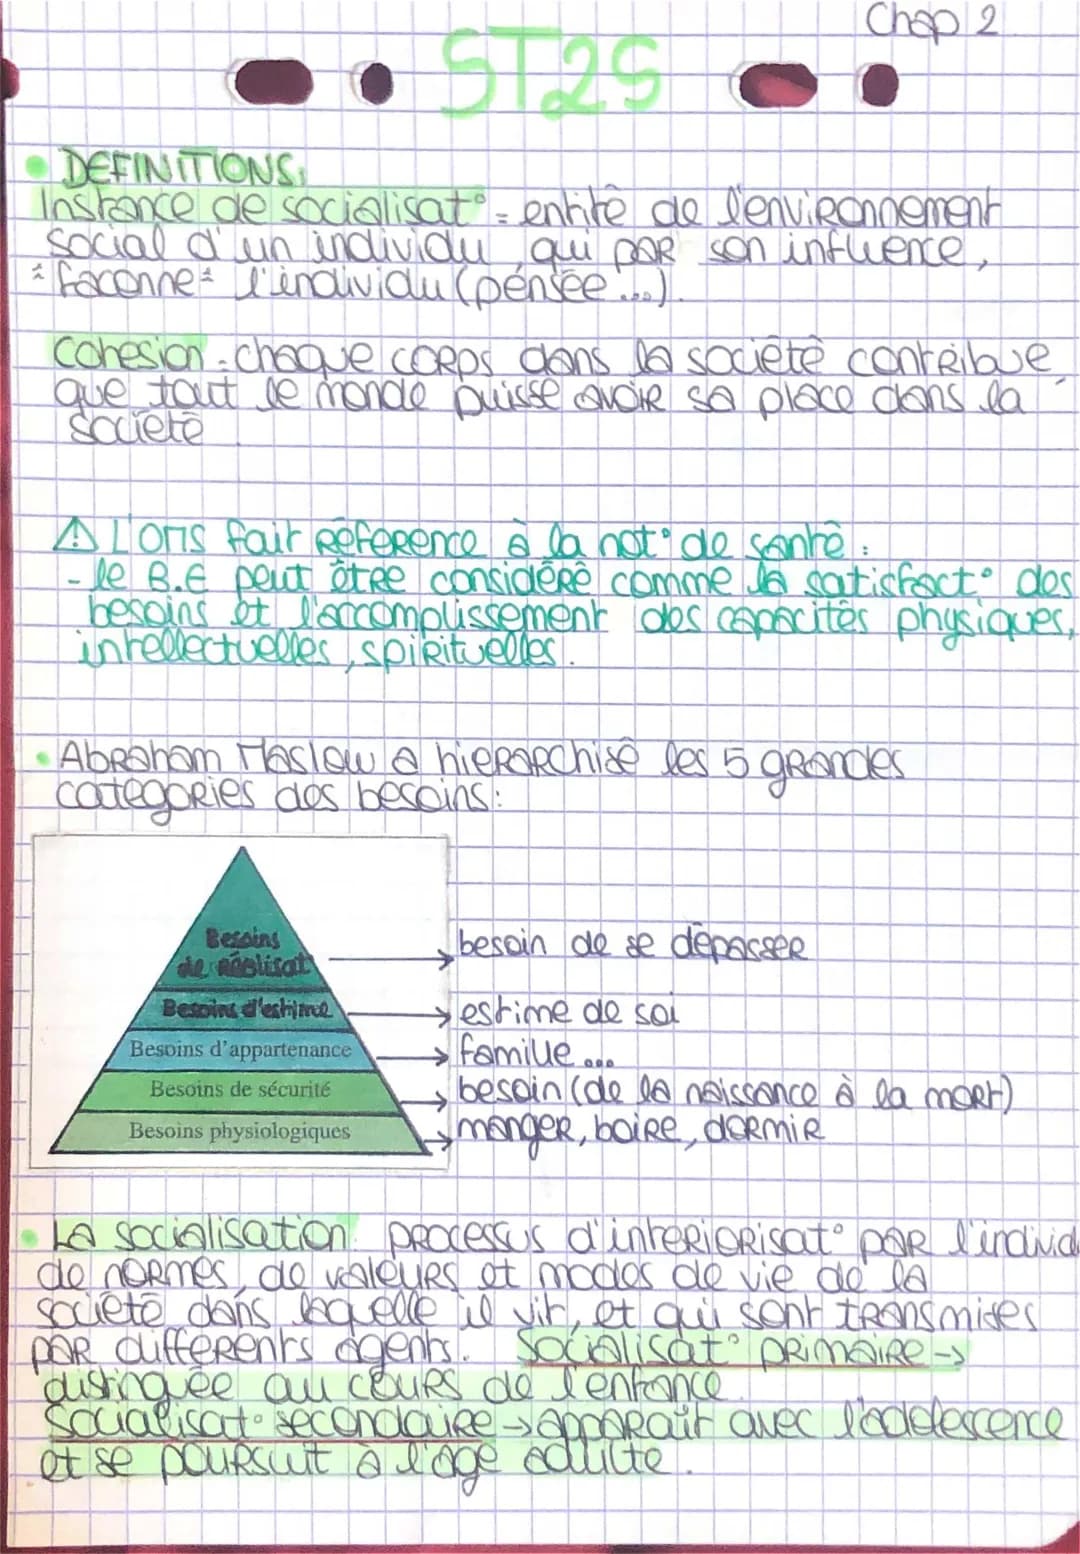 Chap 2
ST2S
• DEFINITIONS:
Instance de socialisat° = entité de l'environnement
social d'un individu, qui par son influence,
"façonne" l'individu (pensée...).
Cohesion - chaque corps dans la société contribue,
que tout le monde puisse avoir sa place dans la
société
⚠ L'OMS fait référence à la not° de santé :
- le B.E peut être considéré comme la satisfact° des
besoins et l'accomplissement des capacités physiques,
intellectuelles, spirituelles.
• Abraham Maslow a hierarchisé les 5 grandes
categories des besoins:
Besoins
de réalisat
→ besoin de se dépasser
Besoins d'estime
→ estime de soi
Besoins d'appartenance
→ famille...
Besoins de sécurité
→ besoin (de la naissance à la mort)
Besoins physiologiques
→ manger, boire, dormir
• La socialisation: processus d'interiorisat° par l'individ
de normes, de valeurs et modes de vie de la
société dans laquelle il vit, et qui sont transmises
par différents agents. Socialisat° primaire →
distinguée au cours de l'enfance.
Socialisat° secondaire → apparait avec l'adolescence
et se poursuit à l'âge adulte.